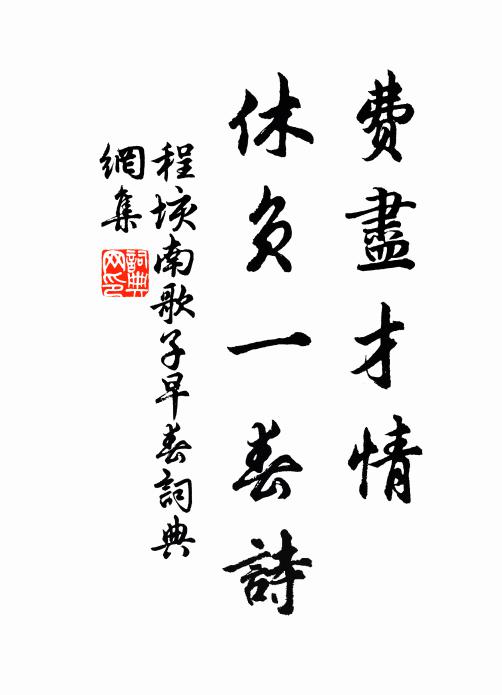 費盡才情
休負一春詩
程垓南歌子早春詞典
網集
詞典
网印